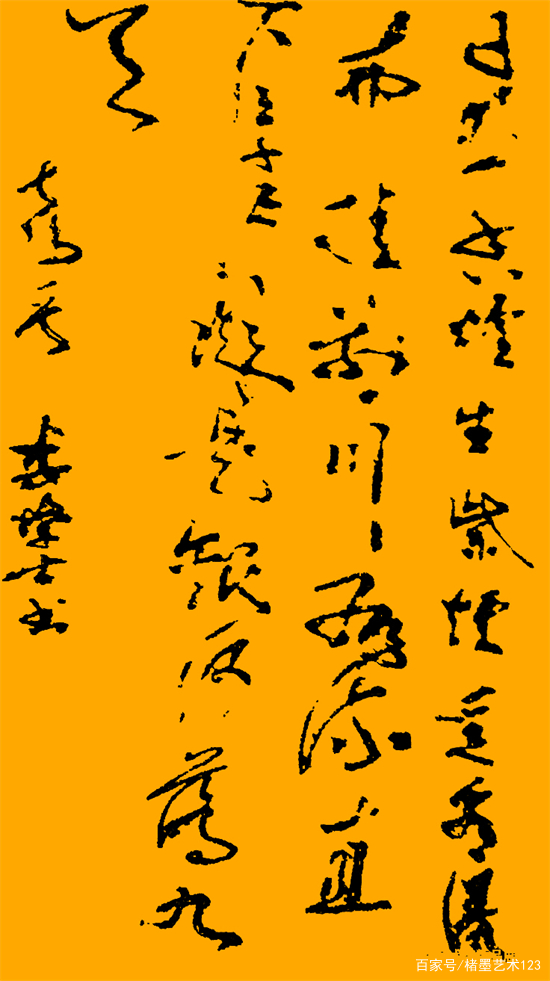 日照香爐生紫煙遥看瀑
布挂前川飛流直
下三千尺疑是銀河落九
天
百家号/楮墨艺术123